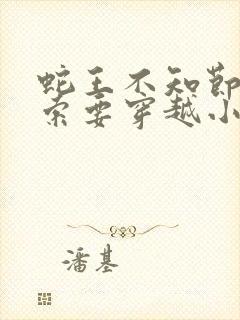 蛇王不知节
索要穿越小
潘基